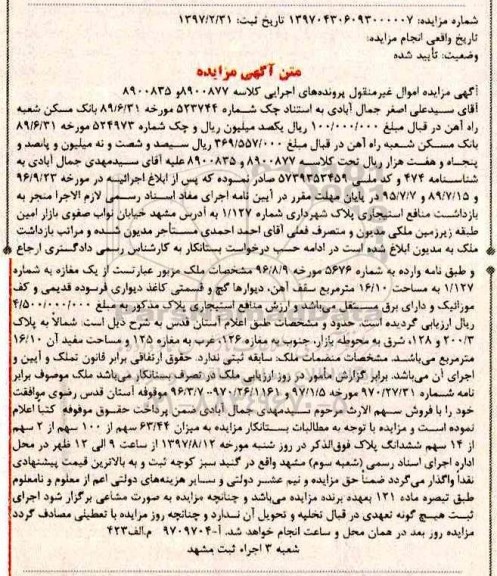 شماره مزایده: ۱۳۹۷۰۴۳۰۶۰۹۳۰۰۰۰۰۷ تاریخ ثبت: ۱۳۹۷/۲/۳۱
تاریخ واقعی انجام مزایده:
وضعیت: تأیید شده
متن آگهی مزایده
آگهی مزایده اموال غیرمنقول پرونده‌های اجرایی کلاسه ۸۹۰۰۸۷۷و ۸۹۰۰۸۳۵
آقای سیدعلی اصغر جمال آبادی به استناد چک شماره ۵۲۳۷۴۴ مورخه ۸۹/۶/۳۱ بانک مسکن شعبه
راه آهن در قبال مبلغ ۱۰۰/۰۰۰/۰۰۰ ریال یکصد میلیون ریال و چک شماره ۵۲۴۹۷۳ مورخه ۸۹/۶/۳۱
بانک مسکن شعبه راه آهن در قبال مبلغ ۳۶۹/۵۵۷/۰۰۰ ریال سیصد و شصت و نه میلیون و پانصد و
پنجاه و هفت هزار ریال تحت کلاسه ۸۹۰۰۸۷۷ و ۸۹۰۰۸۳۵ علیه آقای سیدمهدی جمال آبادی به
شناسنامه ۴۷۴ و کد ملی ۵۷۳۹۳۵۳۴۵۹ صادر نموده که پس از ابلاغ اجرائیه در مورخه ۹۶/۹/۲۳
و ۸۹/۷/۱۵ و ۹۵/۷/۷ و در پایان مهلت مقرر در آیین نامه اجرای مفاد اسناد رسمی لازم الاجرا منجر به
بازداشت منافع استیجاری پلاک شهرداری شماره ۱/۱۲۷ به آدرس مشهد خیابان نواب صفوی بازار امین
طبقه زیرزمین ملکی مدیون و متصرف فعلی آقای احمد احمدی مستأجر مدیون شده و مراتب بازداشت
ملک به مدیون ابلاغ شده است در ادامه حسب درخواست بستانکار به کارشناس رسمی دادگستری ارجاع
و طبق نامه وارده به شماره ۵۶۷۶ مورخه ۹۶/۸/۹ مشخصات ملک مزبور عبارتست از یک مغازه به شماره
۱/۱۲۷ به مساحت ۱۶/۱۰ مترمربع سقف آهن، دیوارها گچ و قسمتی کاغذ دیواری فرسوده قدیمی و کف
موزائیک و دارای برق مستقل می‌باشد و ارزش منافع استیجاری پلاک مذکور به مبلغ ۴/۵۰۰/۰۰۰/۰۰۰
ریال ارزیابی گردیده است. حدود و مشخصات طبق اعلام آستان قدس به شرح ذیل است: شمالاً به پلاک
۲۰۰/۳ و ۱۲۸، شرق به محوطه بازار، جنوب به مغازه ۱۲۶، غرب به مغازه ۱۲۵ و مساحت مفید آن ۱۶/۱۰
مترمربع می‌باشد. مشخصات منضمات ملک: سابقه ثبتی ندارد. حقوق ارتفاقی برابر قانون تملک و آیین و
اجرای آن می‌باشد. برابر گزارش مأمور در روز ارزیابی ملک در تصرف بستانکار می‌باشد ملک موصوف برابر
نامه شماره ۹۷۰/۲۷/۳۱ مورخه ۹۷/۱/۵ و ۹۷۰/۲۶/۱۱۶۱ -۹۶/۳/۷ موقوفه آستان قدس رضوی موافقت
خود را با فروش سهم الارث مرحوم سیدمهدی جمال آبادی ضمن پرداخت حقوق موقوفه کتباً اعلام
نموده است و مزایده با توجه به مطالبات بستانکار مزایده به میزان ۶۳/۴۴ سهم از ۱۰۰ سهم از ۲ سهم
از ۱۴ سهم ششدانگ پلاک فوق‌الذکر در روز شنبه مورخه ۱۳۹۷/۸/۱۲ از ساعت ۹ الی ۱۲ ظهر در محل
اداره اجرای اسناد رسمی (شعبه سوم) مشهد واقع در گنبد سبز کوچه ثبت و به بالاترین قیمت پیشنهادی
نقداً واگذار می‌گردد ضمناً حق مزایده و نیم عشر دولتی و سایر هزینه‌های دولتی اعم از معلوم و نامعلوم
طبق تبصره ماده ۱۲۱ بعهده برنده مزایده می‌باشد و چنانچه مزایده به صورت مشاعی برگزار شود اجرای
ثبت هیچ گونه تعهدی در قبال تخلیه و تحویل آن ندارد و چنانچه روز مزایده با تعطیلی مصادف گردد
مزایده روز بعد در همان محل و ساعت انجام خواهد شد. آ-۹۷۰۹۷۰۴ م.الف۴۲۳
شعبه ۳ اجراء ثبت مشهد